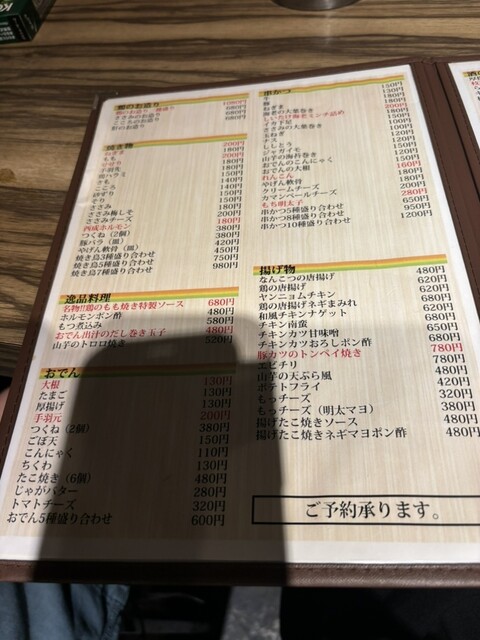 鶏のお造り
1080円
ささみのお造り 680円
こころのお造り 680円
肝のお造り 680円
焼き物
ねぎま 200円
もも 180円
せせり 200円
手羽先 180円
肉ハラミ 180円
きも 150円
こころ 140円
ずり 150円
そり 150円
ささみ 180円
ささみ梅しそ 200円
ささみチーズ 200円
西成ホルモン 180円
つくね(2個) 380円
豚バラ(皿) 380円
やげん軟骨(皿) 420円
焼き鳥3種盛り合わせ 450円
焼き鳥5種盛り合わせ 750円
焼き鳥7種盛り合わせ 980円
逸品料理
名物!!鶏のもも焼き特製ソース 680円
ホルモンポン酢 480円
もつ煮込み 580円
おでん出汁のだし巻き玉子 480円
山芋のトロロ焼き 520円
おでん
大根 130円
たまご 130円
厚揚げ 130円
手羽元 200円
つくね(2個) 380円
ごぼ天 150円
こんにゃく 110円
ちくわ 130円
たこ焼き(6個) 480円
じゃがバター 280円
トマトチーズ 320円
おでん5種盛り合わせ 600円
串かつ
牛 150円
豚 130円
ねぎま 180円
海老の大葉巻き 200円
しいたけ海老ミンチ詰め 180円
イカ下足
ささみの大葉巻き
玉ねぎ
ナス
ししとう
ジャガイモ
山芋の海苔巻き
おでんのこんにゃく
おでんの大根
れんこん 160円
やげん軟骨 180円
クリームチーズ 200円
カマンベールチーズ 280円
もも明太子
串かつ5種盛り合わせ 650円
串かつ8種盛り合わせ 950円
串かつ10種盛り合わせ 1200円
揚げ物
なんこつの唐揚げ 480円
鶏の唐揚げ 620円
ヤンニョムチキン 620円
鶏の唐揚げネギまみれ 680円
和風チキンナゲット 620円
チキン南蛮 680円
チキンカツ甘味噌 650円
チキンカツおろしポン酢 680円
豚カツのトンペイ焼き 780円
エビチリ 780円
山芋の天ぷら風 480円
ポテトフライ 420円
もっチーズ 320円
もっチーズ(明太マヨ) 380円
揚げたこ焼きソース 480円
揚げたこ焼きネギマヨポン酢 480円
ご予約承ります。